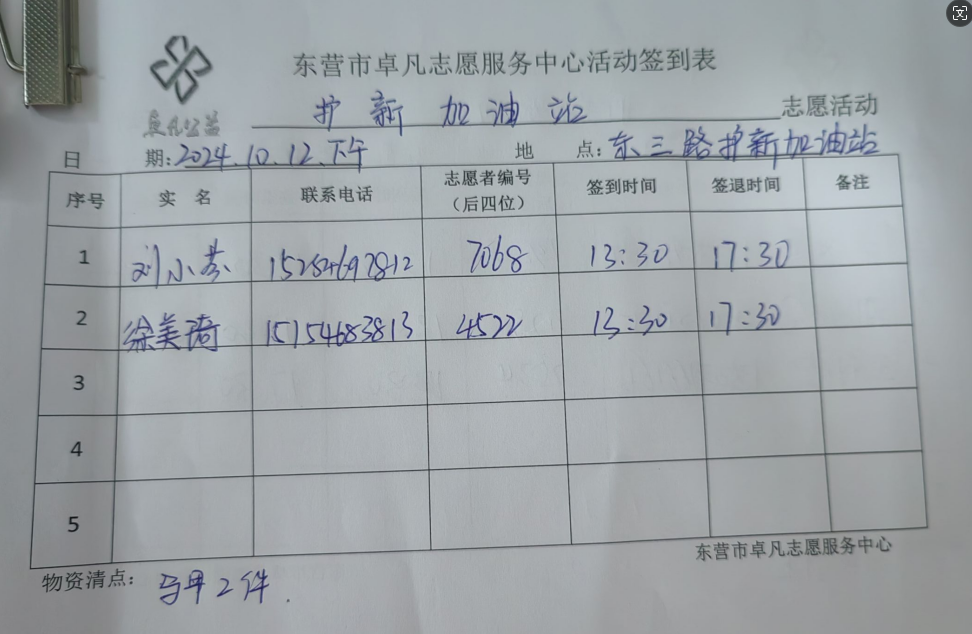 东营市卓凡志愿服务中心活动签到表
卓凡公益
护新加油站 志愿活动
日期:2024.10.12.下午 地点:东三路护新加油站
序号 实名 联系电话 志愿者编号(后四位) 签到时间 签退时间 备注
1 刘小芬 15254697812 7068 13:30 17:30
2 徐美琦 15154683813 4522 13:30 17:30
3
4
5
东营市卓凡志愿服务中心
物资清点: 马甲2件.